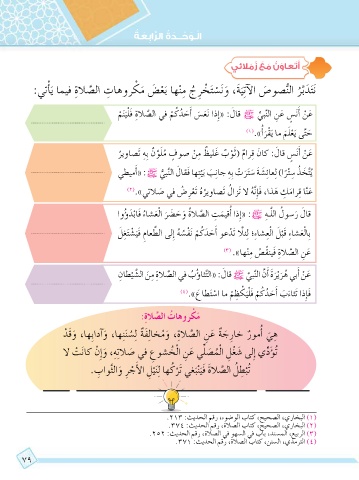 الوَحْدَةُ الرَّابِعَةُ
أَتَعاوَنُ مَعَ زُمَلائي
نَتَدَبَّرُ النُّصوصَ الآتِيَةَ، وَنَسْتَخْرِجُ مِنْها بَعْضَ مَكْروهاتِ الصَّلاةِ فيما يَأْتي:
عَنْ أَنَسٍ عَنِ النَّبِيِّ ﷺ قالَ: «إِذا نَعَسَ أَحَدُكُمْ في الصَّلاةِ فَلْيَنَمْ
حَتَّى يَعْلَمَ ما يَقْرَأُ».(١)
عَنْ أَنَسٍ قالَ: كانَ قِرامٌ (ثَوْبٌ غَليظٌ مِنْ صوفٍ مُلَوَّنٌ بِهِ تَصاويرُ
يُتَّخَذُ سِتْرًا) لِعائِشَةَ سَتَرَتْ بِهِ جانِبَ بَيْتِها فَقالَ النَّبِيُّ ﷺ: «أَميطي
عَنَّا قِرامَكِ هَذا، فَإِنَّهُ لا تَزالُ تَصاويرُهُ تَعْرِضُ في صَلاتي».(٢)
قالَ رَسولُ اللَّهِ ﷺ: «إِذا أُقيمَتِ الصَّلاةُ وَحَضَرَ العَشاءُ فَابْدَؤوا
بِالعَشاءِ قَبْلَ العِشاءِ؛ لِئَلَّا تَدْعو أَحَدَكُمْ نَفْسُهُ إِلى الطَّعامِ فَيَشْتَغِلَ
عَنِ الصَّلاةِ فَيَنْقُصَ مِنْها».(٣)
عَنْ أَبي هُرَيْرَةَ أَنَّ النَّبِيَّ ﷺ قالَ: «التَّثاؤُبُ في الصَّلاةِ مِنَ الشَّيْطانِ
فَإِذا تَثاءَبَ أَحَدُكُمْ فَلْيَكْظِمْ ما اسْتَطاعَ».(٤)
مَكْروهاتُ الصَّلاةِ:
هِيَ أُمورٌ خارِجَةٌ عَنِ الصَّلاةِ، وَمُخالِفَةٌ لِسُنَنِها، وَآدابِها، وَقَدْ
تُؤَدِّي إِلى شَغْلِ المُصَلِّي عَنِ الخُشوعِ في صَلاتِهِ، وَإِنْ كانَتْ لا
تُبْطِلُ الصَّلاةَ فَيَنْبَغي تَرْكُها لِنَيْلِ الأَجْرِ وَالثَّوابِ.
(١) البخاري، الصحيح، كتاب الوضوء، رقم الحديث: ٢١٣.
(٢) البخاري، الصحيح، كتاب الصلاة، رقم الحديث: ٣٧٤.
(٣) الربيع، المسند، باب في السهو في الصلاة، رقم الحديث: ٢٥٢.
(٤) الترمذي، السنن، كتاب الصلاة، رقم الحديث: ٣٧١.
٧٩